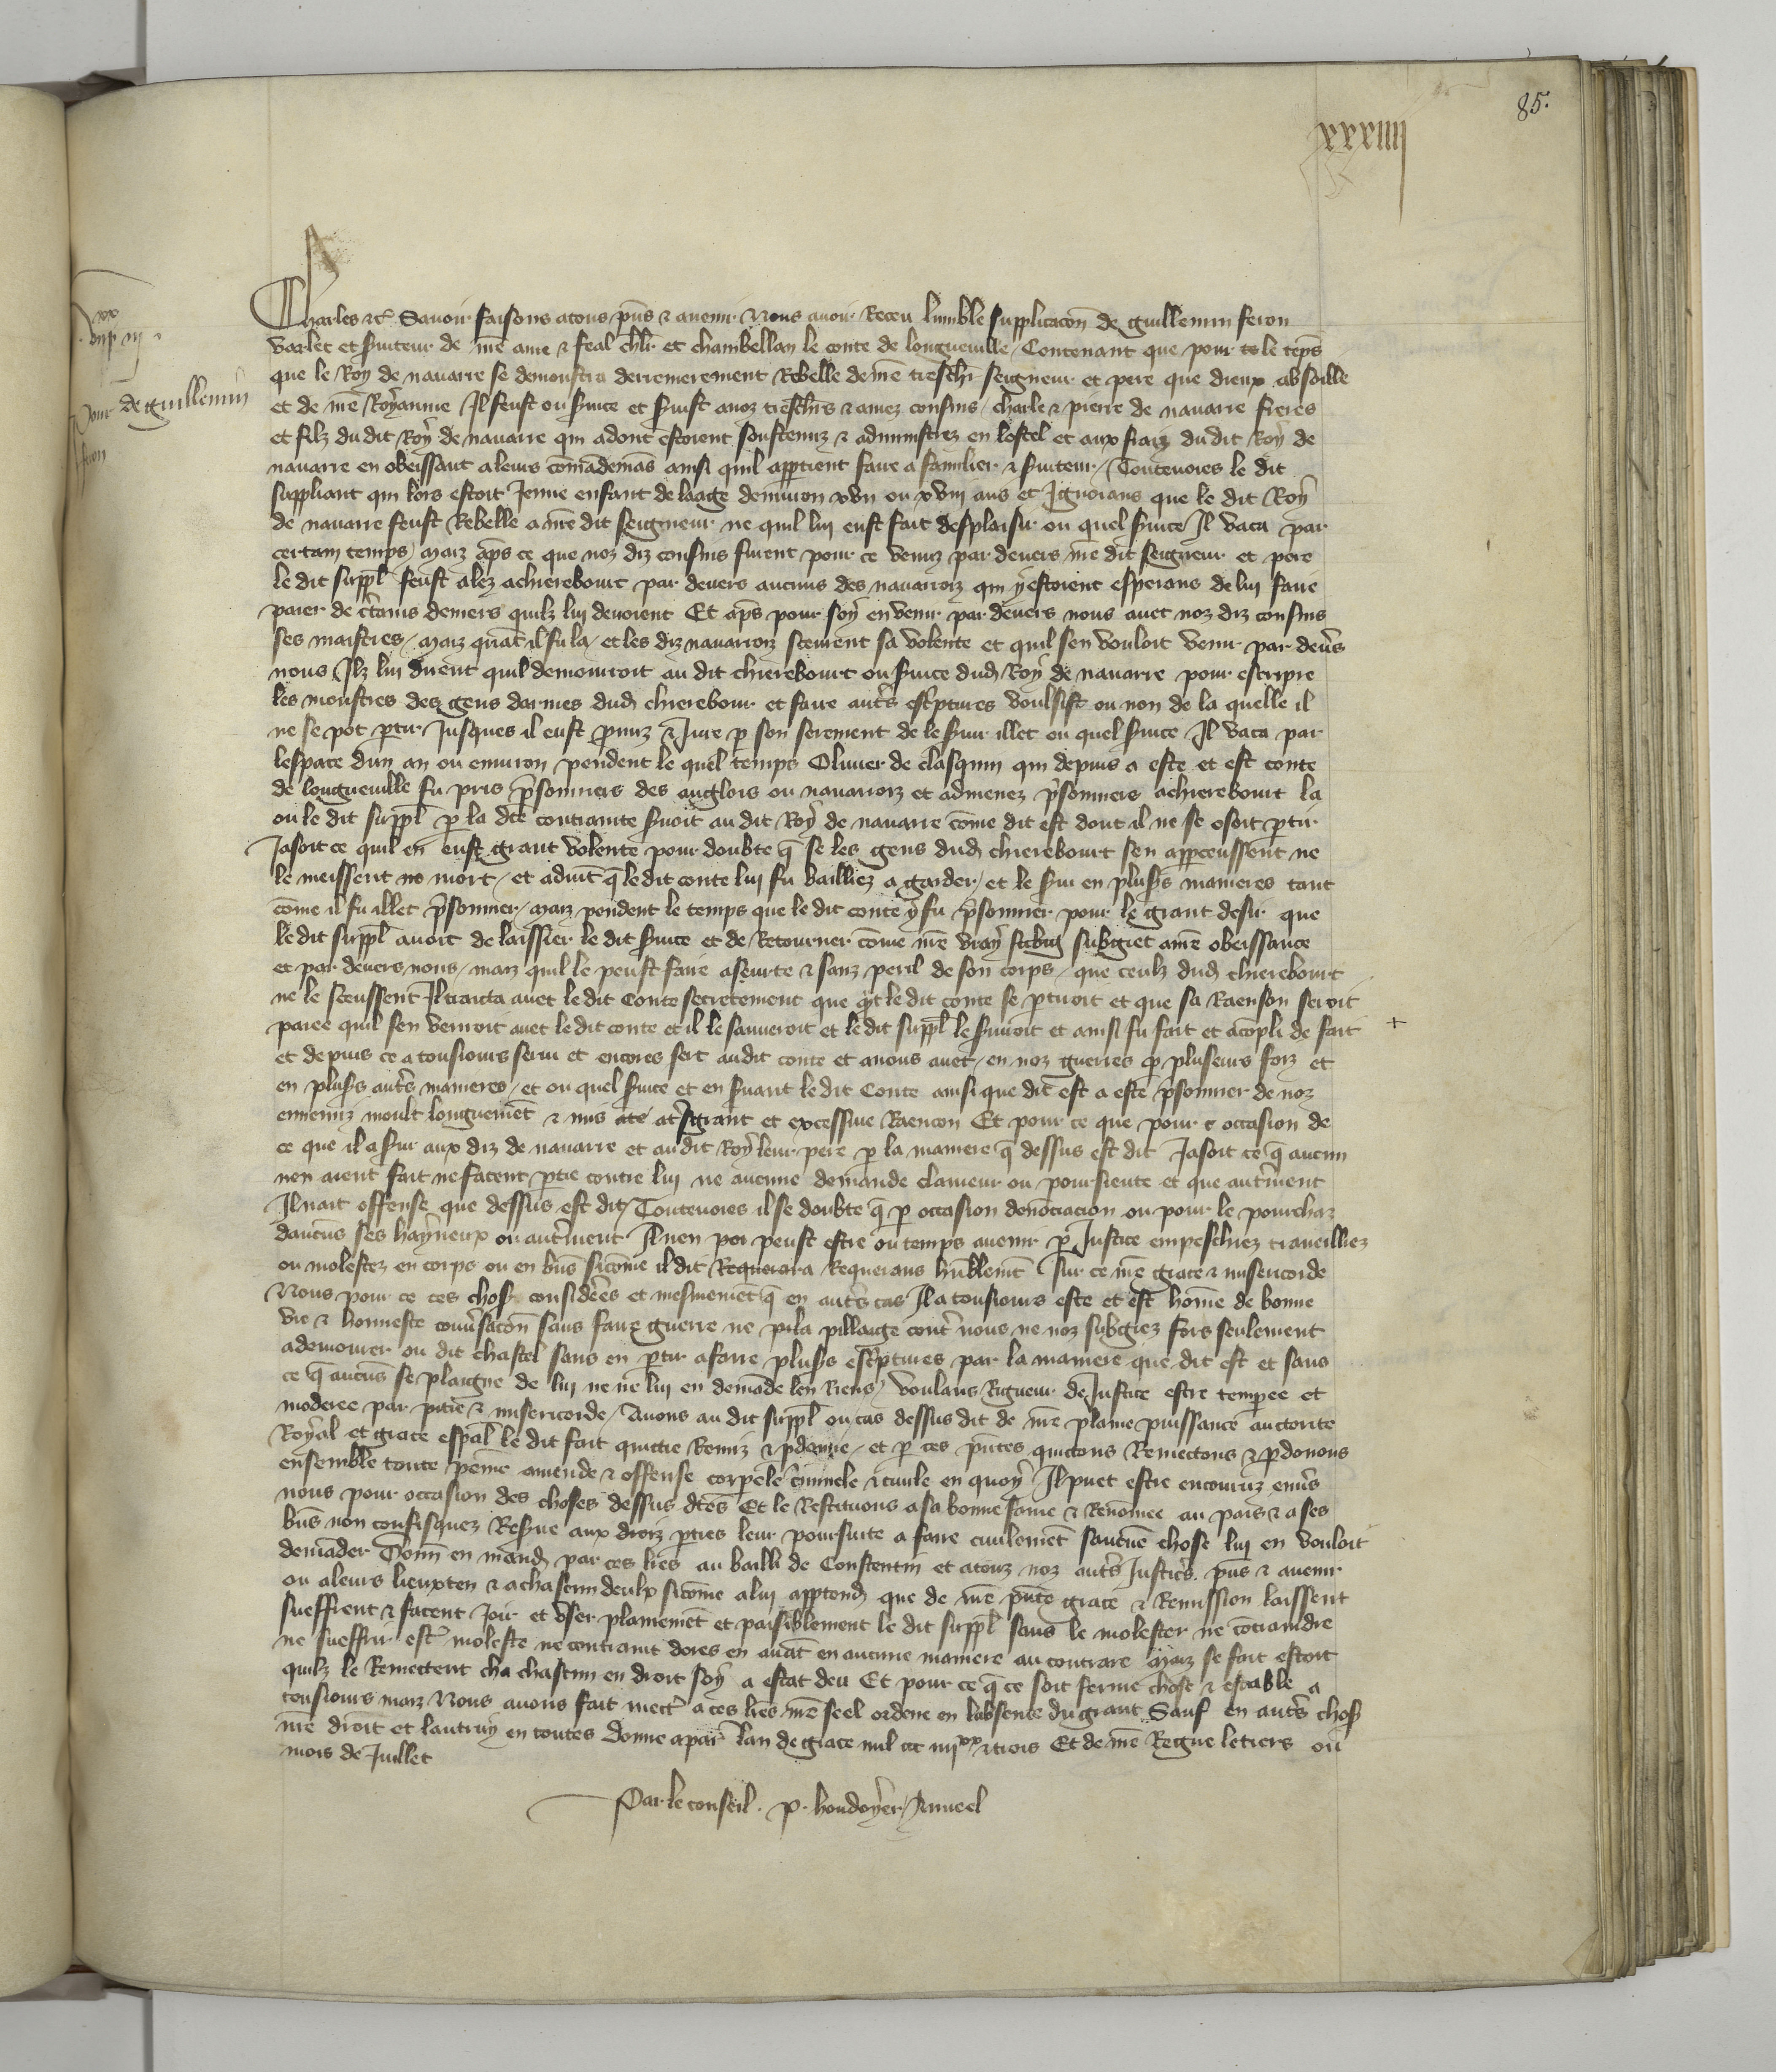 85.
xxxiiii
iiijxx iij.
Pour de guillemin
feron
Charles etc̃ Sauoir faisons a tous p̃ns & auenir Nous auoir Receu lumble supplicacõn de guillemin feron
varlet et s̃uiteur de nr̃e ame & feal chlr̃ et chambellan le conte de longueuille / Contenant que pour le tẽps
que le Roy de nauarre se demonstra derrenierement Rebelle de nr̃e treschr̃ seigneur et pere que dieux absoille
et de nr̃e Royaume Il feust ou s̃uice et s̃uist a noz treschr̃s & amez cousins / charle & pierre de nauarre freres
et filz du dit Roy de nauarre qui adont estoient soustenuz & administrez en lostel et aux fraiz du dit Roy de
nauarre en obeissant a leurs com̃ademẽs ainsi quil app̃tient faire a familier & s̃uiteur / Toutenoies le dit
suppliant qui lors estoit Jenne enfant de laage denuiron xvij ou xviij ans et Ignorans que le dit Roy
de nauarre feust Rebelle a nr̃e dit seigneur ne quil lui eust fait desplaisir ou quel s̃uice Il vaca par
certain temps / maiz ap̃s ce que noz diz cousins furent pour ce venuz par deuers nr̃e dit seigneur et pere
le dit suppl̃ feust alez a chierebourt par deuers aucuns des nauarroiz qui y estoient esperans de lui faire
paier de c̃tains deniers quilz lui deuoient Et ap̃s pour soy en venir par deuers nous auec noz diz cousins
ses maistres / maiz quãt il fu la / et les diz nauarroiz sceurent sa volente et quil sen vouloit venir par deũs
nous Ilz lui dirent quil demourroit au dit chierebourt ou s̃uice dud̃ Roy de nauarre pour escripre
les monstres des gens darmes dud̃ chierebour et faire aut̃s esc̃ptures voulsist ou non de la quelle il
ne se pot p̃tir Jusques il eust p̃miz & Jure p̃ son serement de le s̃uir illec ou quel s̃uice Il vaca par
lespace dun an ou enuiron pendent le quel temps Oliuier de clasquin qui depuis a este et est conte
de longueuille fu pris p̃sonniers des anglois ou nauarroiz et admenez p̃sonniers a chierebourt la
ou le dit suppl̃ p̃ la dc̃e contrainte s̃uoit au dit Roy de nauarre cõme dit est dont il ne se osoit p̃tir
Jasoit ce quil en eust grant volente pour doubte q̃ se les gens dud̃ chierebourt sen app̃ceussent ne
le meissent no mort / et aduit q̃ le dit conte lui fu bailliez a garder / et le s̃ui en plus̃rs manieres tant
cõme il fu illec p̃sonnier / maiz pendent le temps que le dit conte y fu p̃sonnier pour le grant desir que
le dit suppl̃ auoit de laissier le dit s̃uice et de Retourner cõme nr̃e vray subgiet a nr̃e obeissance
et par deuers nous / maiz quil le peust faire a seurte & sanz peril de son corps / que ceulx dud̃ chierebourt
ne le sceussent Il traicta auec le dit Conte secretement que q̃t le dit conte se p̃tiroit et que sa Raenson seroit
paiee quil sen venroit auec le dit conte et il le sauueroit et le dit suppl̃ le s̃uiroit et ainsi fu fait et acõpli de fait +
et depuis ce a tousiours serui et encores sert au dit conte et a nous auec / en noz guerres p̃ pluseurs foiz et
en plus̃rs aut̃s manieres / et ou quel s̃uice et en s̃uant le dit Conte ainsi que dit est a este p̃sonnier de noz
ennemiz moult longuemẽt & mis a t̃sgrant et excessiue Raencon Et pour ce que pour occasion de
ce que il a s̃ui aux diz de nauarre et au dit Roy leur pere p̃ la maniere q̃ dessus est dit Jasoit ce q̃ aucun
nen aient fait ne facent p̃tie contre lui ne aucune demande clameur ou poursiente et que aut̃ment
Il nait offense que dessus est dit / Toutenoies il se doubte q̃ p̃ occasion denõciacion ou pour le pourchaz
daucũs ses hayneux ou aut̃ment Il nen poi peust estre ou temps auenir p̃ Justice empeschiez trauailliez
ou molestez en corps ou en biẽs sicõme il dit Requerans hũblemẽt sur ce nr̃e grace & misericorde
Nous pour ce ces choses considẽes et mesmemẽt q̃ en aut̃s cas Il a tousiours este et est hõme de bonne
vie & honneste conũsacõn sans faire guerre ne pilla pillaige cont̃ nous ne noz subgiez fors seulement
a demourer ou dit chastel sans en p̃tir a faire plus̃rs esc̃ptures par la maniere que dit est et sans
ce q̃ aucũs se plaigne de lui ne ne lui en demãde len Riens / voulans Rigueur de Justice estre temp̃ee et
moderee par pitie & misericorde / Auons au dit suppl̃ ou cas dessus dit de nr̃e plaine puissance auctorite
Royal et grace esp̃al le dit fait quictie Remiz & p̃donne / et p̃ ces p̃ntes quictons Remectons & p̃donons
ensemble toute peine amende & offense corpele c̃iminele & ciuile en quoy Il puet estre encouruz enũs
nous pour occasion des choses dessus dc̃es Et le Restituons a sa bonne fame & Renõmee au pais & a ses
biẽs non confisquez Res̃ue aux droiz p̃ties leur poursuite a faire ciuilemẽt saucune chose lui en vouloit
demãder Donñ en mand̃ par ces lr̃es au bailli de Constentin et a touz noz aut̃s Justic̃s p̃ns & auenir
ou a leurs lieuxten̄ & a chascun deulx sicõme a lui app̃tend̃ que de nr̃e p̃nte grace & Remission laissent
sueffrent & facent Joir et vser plainemẽt et paisiblement le dit suppl̃ sens le molester ne cõtraindre
ne sueffrir est̃ moleste ne contraint dores en auãt en aucune maniere au contraire Maiz se fait estoit
quilz le Remectent cha chascun en droit soy a estat deu Et pour ce q̃ ce soit ferme chose & estable a
tousiours maiz Nous auons fait mect̃ a ces lr̃es nr̃e seel ordene en labsence du grant Sauf en aut̃s choses
nr̃e droit et lautruy en toutes Donne a par̃ lan de grace mil ccc iiijxx & trois Et de nr̃e Regne le tiers ou
mois de Juillet
Par le conseil. p. houdoyer / Jruveel